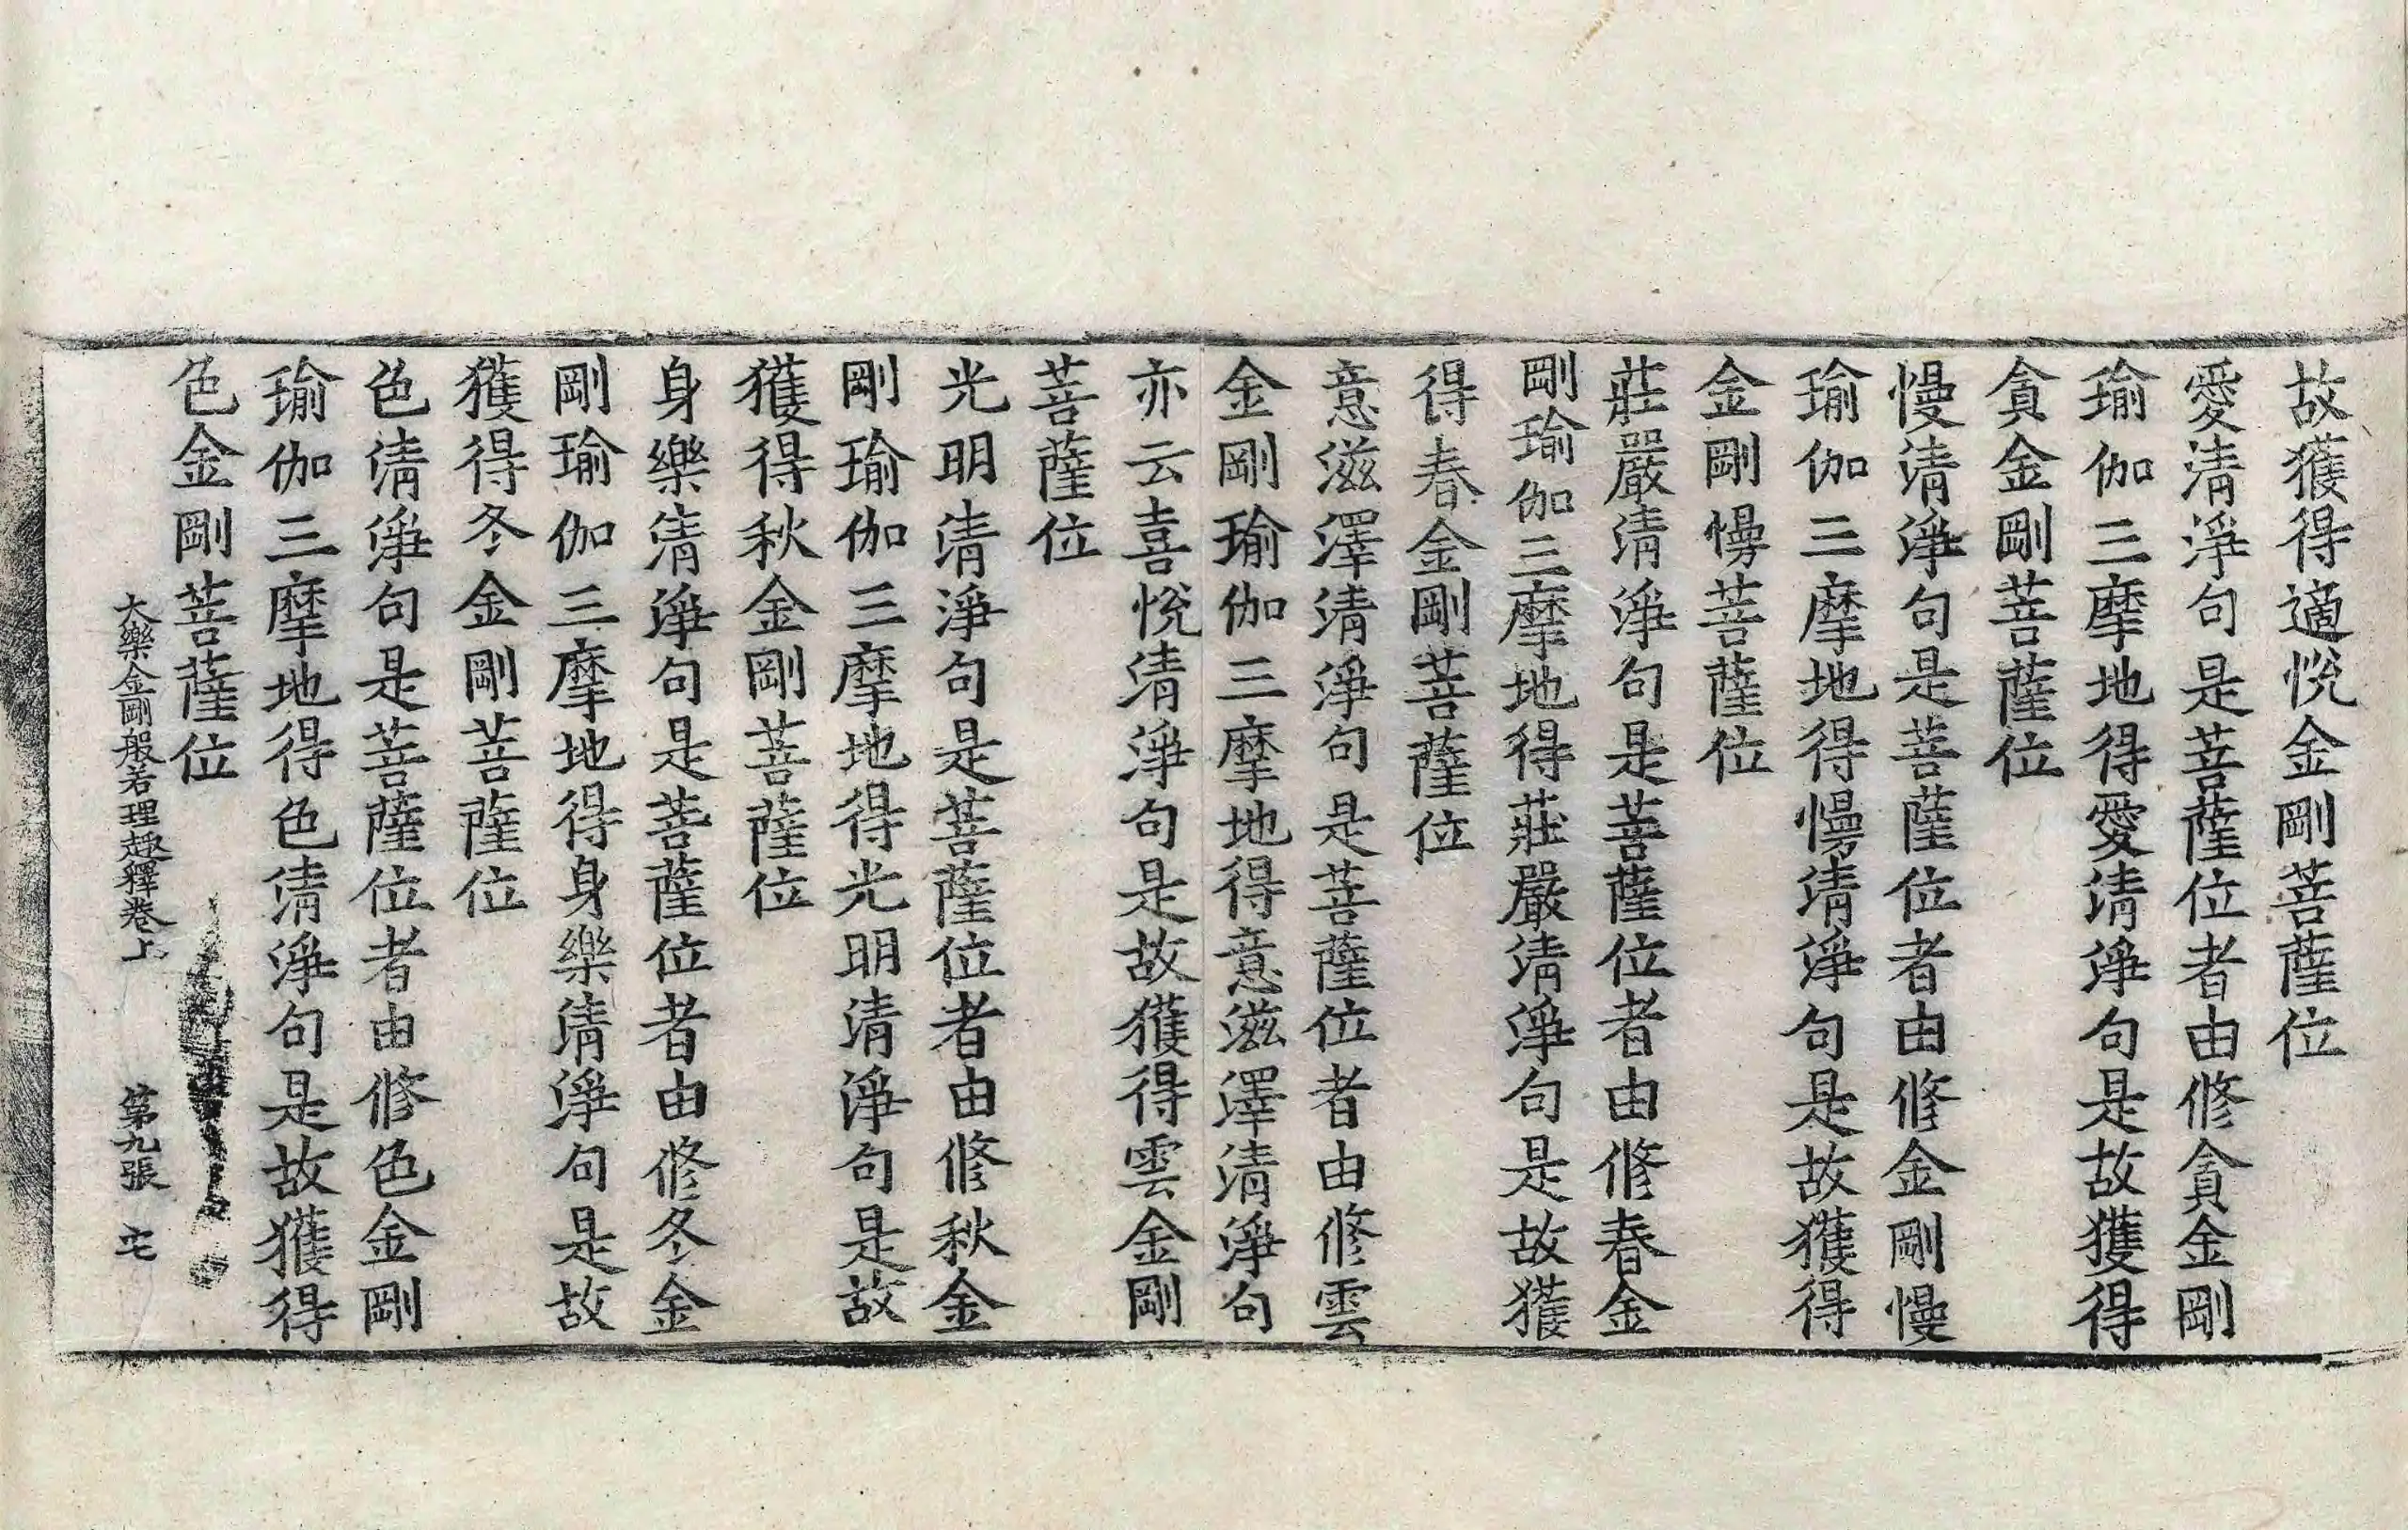 故獲得適悅金剛菩薩位
愛清淨句是菩薩位者由修貪金剛
瑜伽三摩地得愛清淨句是故獲得
貪金剛菩薩位
慢清淨句是菩薩位者由修金剛慢
瑜伽三摩地得慢清淨句是故獲得
金剛慢菩薩位
莊嚴清淨句是菩薩位者由修春金
剛瑜伽三摩地得莊嚴清淨句是故獲
得春金剛菩薩位
意滋澤清淨句是菩薩位者由修雲
金剛瑜伽三摩地得意滋澤清淨句
亦云喜悅清淨句是故獲得雲金剛
菩薩位
光明清淨句是菩薩位者由修秋金
剛瑜伽三摩地得光明清淨句是故
獲得秋金剛菩薩位
身樂清淨句是菩薩位者由修冬金
剛瑜伽三摩地得身樂清淨句是故
獲得冬金剛菩薩位
色清淨句是菩薩位者由修色金剛
瑜伽三摩地得色清淨句是故獲得
色金剛菩薩位
大樂金剛般若理趣釋卷上 第九張 宅